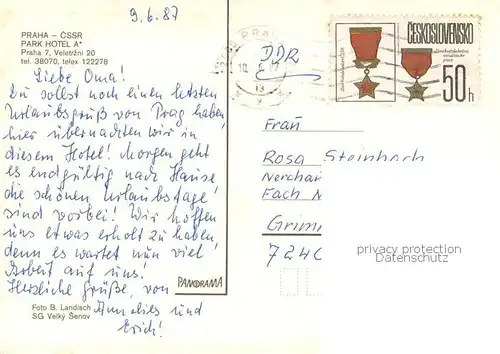 9.6.87
PRAHA – ČSSR
PARK HOTEL A*
Praha 7, Veletržní 20
tel. 38070, telex 122278
Liebe Oma!
Du sollst noch einen letzten
Urlaubsgruß von Prag haben,
hier übernachten wir in
diesem Hotel! Morgen geht
es endgültig nach Hause,
die schönen Urlaubstage
sind vorbei! Wir hoffen
uns etwas erholt zu haben,
denn es wartet nun viel
Arbeit auf uns!
Herzliche Grüße, von
Annelies und
Erich!
Foto B. Landisch
SG Velký Šenov
PANORAMA
DDR
ČESKOSLOVENSKO
50h
Frau
Rosa Steinbach
Fach
Grimm
7240
privacy protection
Datenschutz